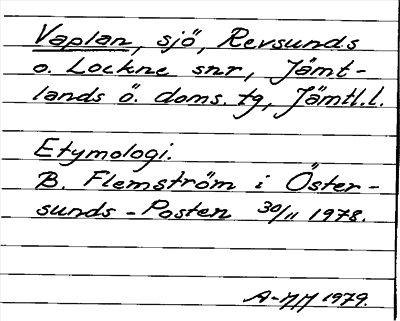 Vaplan, sjö, Revsunds
o. Lockne snr, Jämt-
lands ö. doms. tg, Jämtl.l.
Etymologi.
B. Flemström i Öster-
sunds-Posten 30/11 1978.
1979.